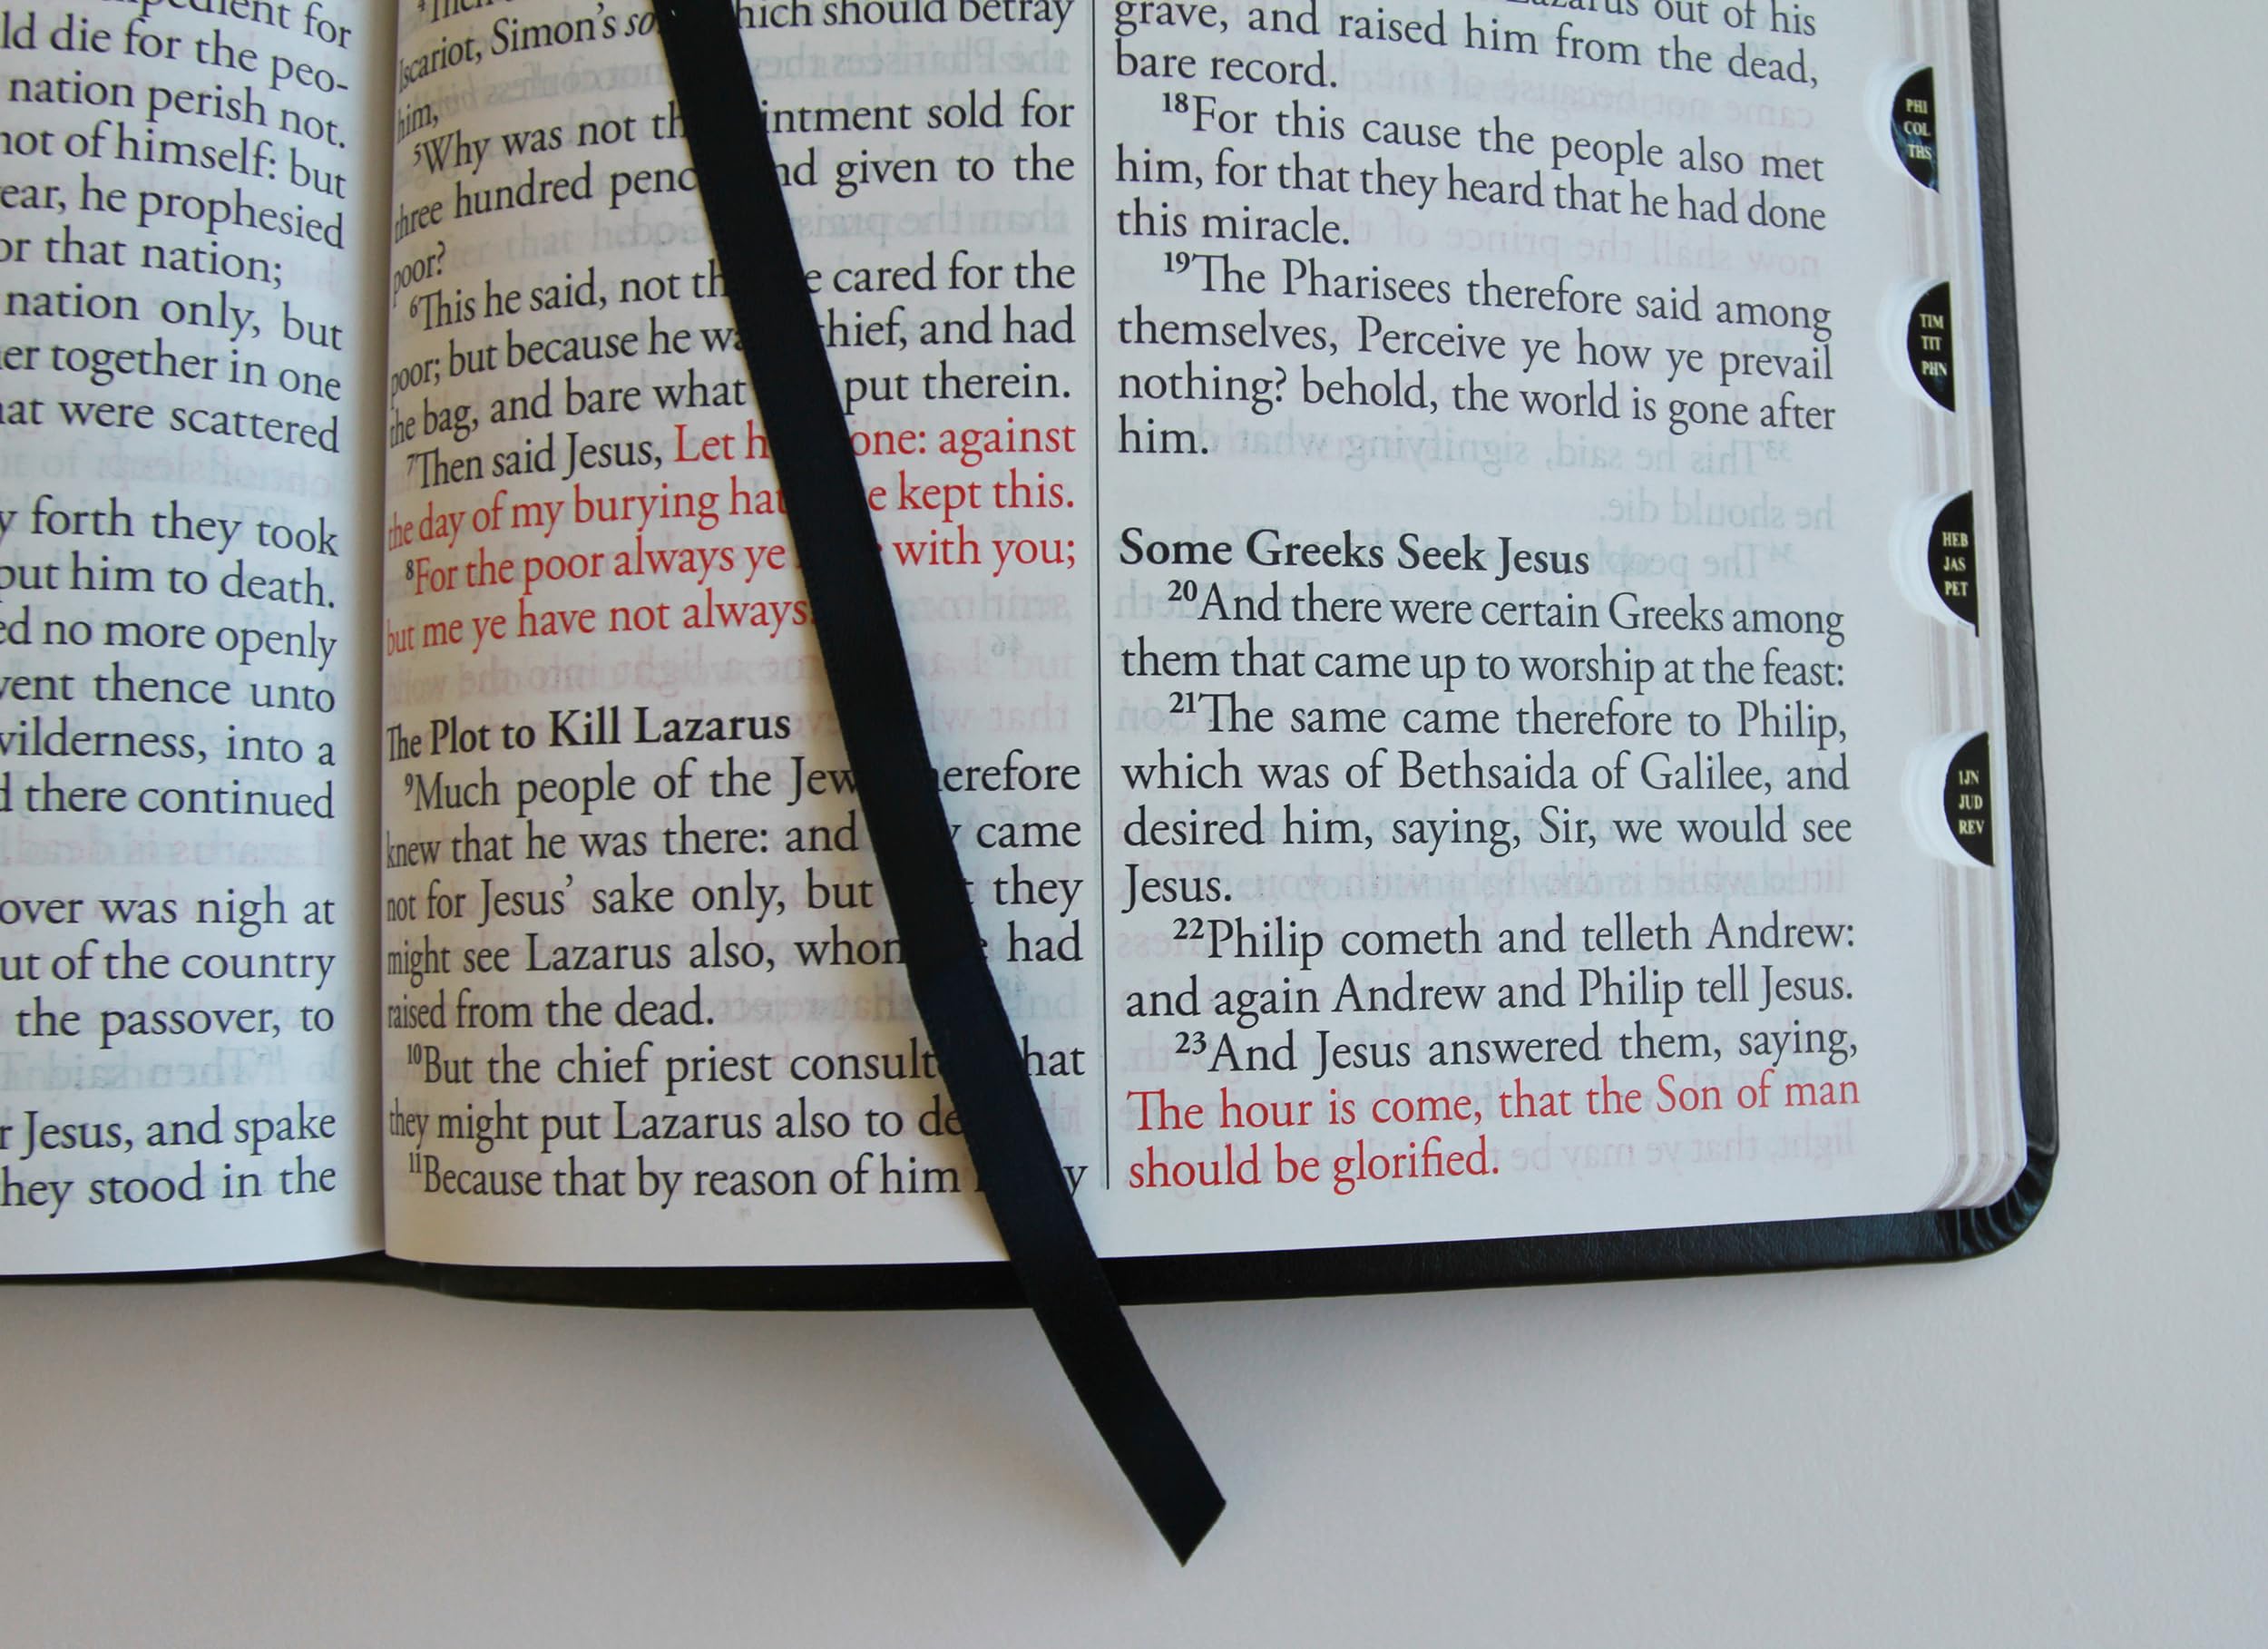 ld die for the peo-
nation perish not.
not of himself: but
ear, he prophesied
or that nation;
nation only, but
er together in one
at were scattered
y forth they took
put him to death.
ed no more openly
vent thence unto
vilderness, into a
d there continued
over was nigh at
ut of the country
the passover, to
r Jesus, and spake
hey stood in the
Iscariot, Simon's so hich should betray
him,
5Why was not th intment sold for
three hundred penc nd given to the
poor?
6This he said, not th e cared for the
poor; but because he wa hief, and had
the bag, and bare what put therein.
7Then said Jesus, Let h one: against
the day of my burying hat e kept this.
8For the poor always ye with you;
but me ye have not always
The Plot to Kill Lazarus
9Much people of the Jew erefore
knew that he was there: and y came
not for Jesus' sake only, but they
might see Lazarus also, whom e had
raised from the dead.
10But the chief priest consult hat
they might put Lazarus also to de
11Because that by reason of him y
out of his
grave, and raised him from the dead,
bare record.
18For this cause the people also met
him, for that they heard that he had done
this miracle.
19The Pharisees therefore said among
themselves, Perceive ye how ye prevail
nothing? behold, the world is gone after
him.
Some Greeks Seek Jesus
20And there were certain Greeks among
them that came up to worship at the feast:
21The same came therefore to Philip,
which was of Bethsaida of Galilee, and
desired him, saying, Sir, we would see
Jesus.
22Philip cometh and telleth Andrew:
and again Andrew and Philip tell Jesus.
23And Jesus answered them, saying,
The hour is come, that the Son of man
should be glorified.
PHI
COL
THS
TIM
TIT
PHN
HEB
JAS
PET
IJN
JUD
REV